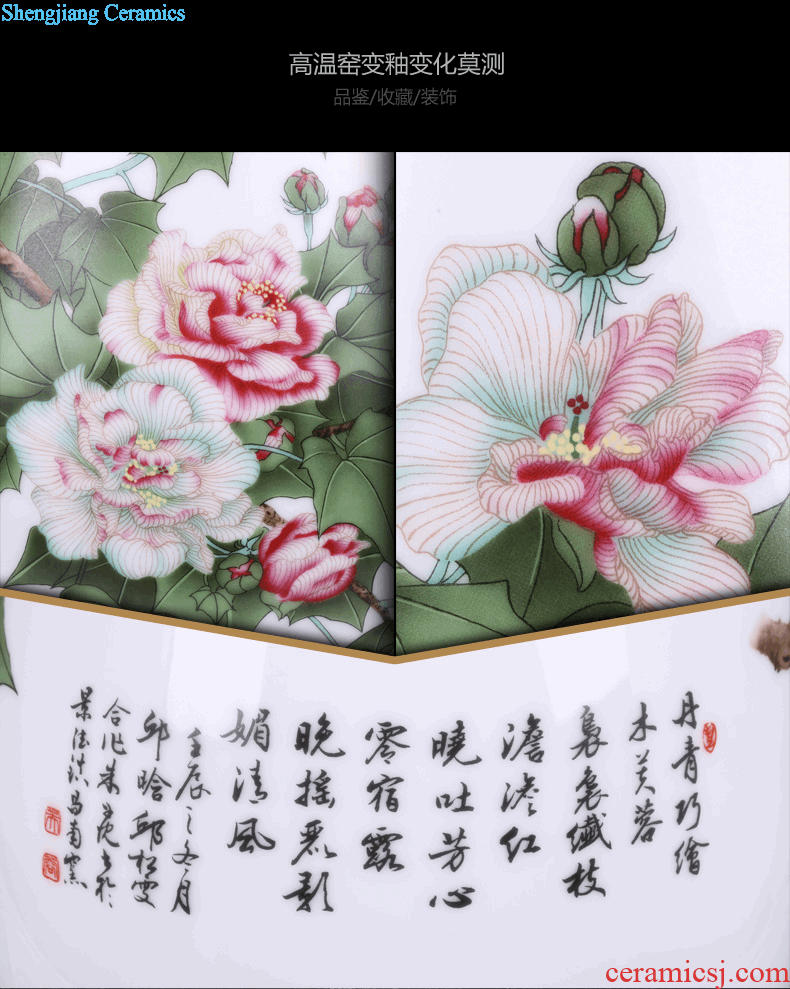 Shengjiang Ceramics
高温窑变釉变化莫测
品鉴/收藏/装饰
丹青巧繪
木芙蓉
裊裊纖枝
澹澹红
曉吐芳心
零宿露
晚摇麗影
媚清風
壬辰之冬月
邱晗邱松雯
合作朱
景德镇昌南窯
ceramicsj.com